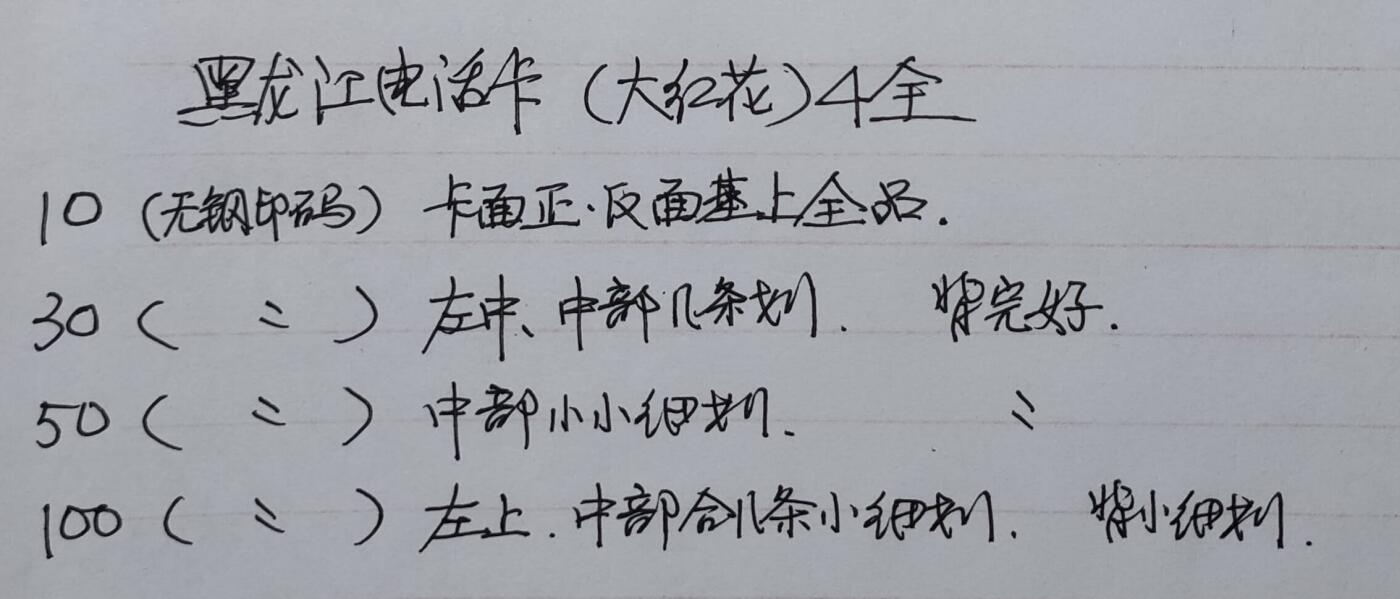 黑龙江电话卡（大红花）4全
10（无钢印码）卡面正.反面基上全品.
30（〃）左中、中部几条划. 背完好.
50（〃）中部小小细划. 〃
100（〃）左上.中部各几条小细划. 背小细划.